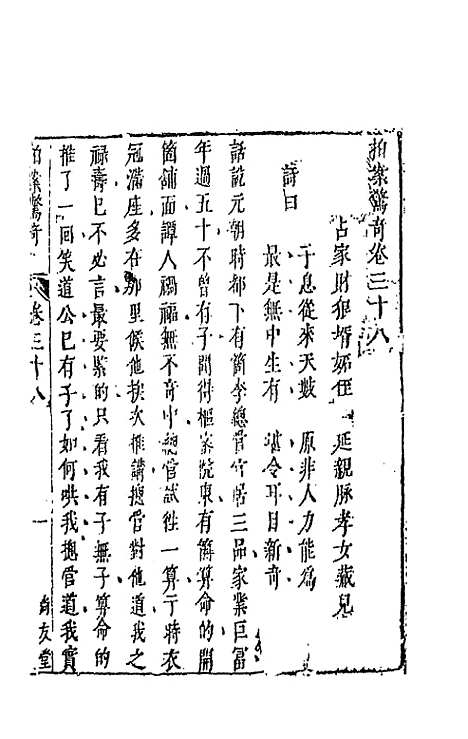 拍案驚奇卷三十八
占家財狠壻妬侄　延親脉孝女藏兒
詩曰
子息從來天數　原非人力能爲
最是無中生有　堪令耳目新奇
話說元朝時都下有箇李總管官居三品家業巨富
年過五十不曾有子聞得樞密院東有箇算命的開
箇舖面譚人禍福無不奇中總管試徃一算于時衣
冠滿座多在那里候他挨次推講總管對他道我之
禄壽已不必言最要緊的只看我有子無子算命的
推了一回笑道公已有子了如何哄我總管道我實
拍案驚奇　卷三十八　一　尚友堂